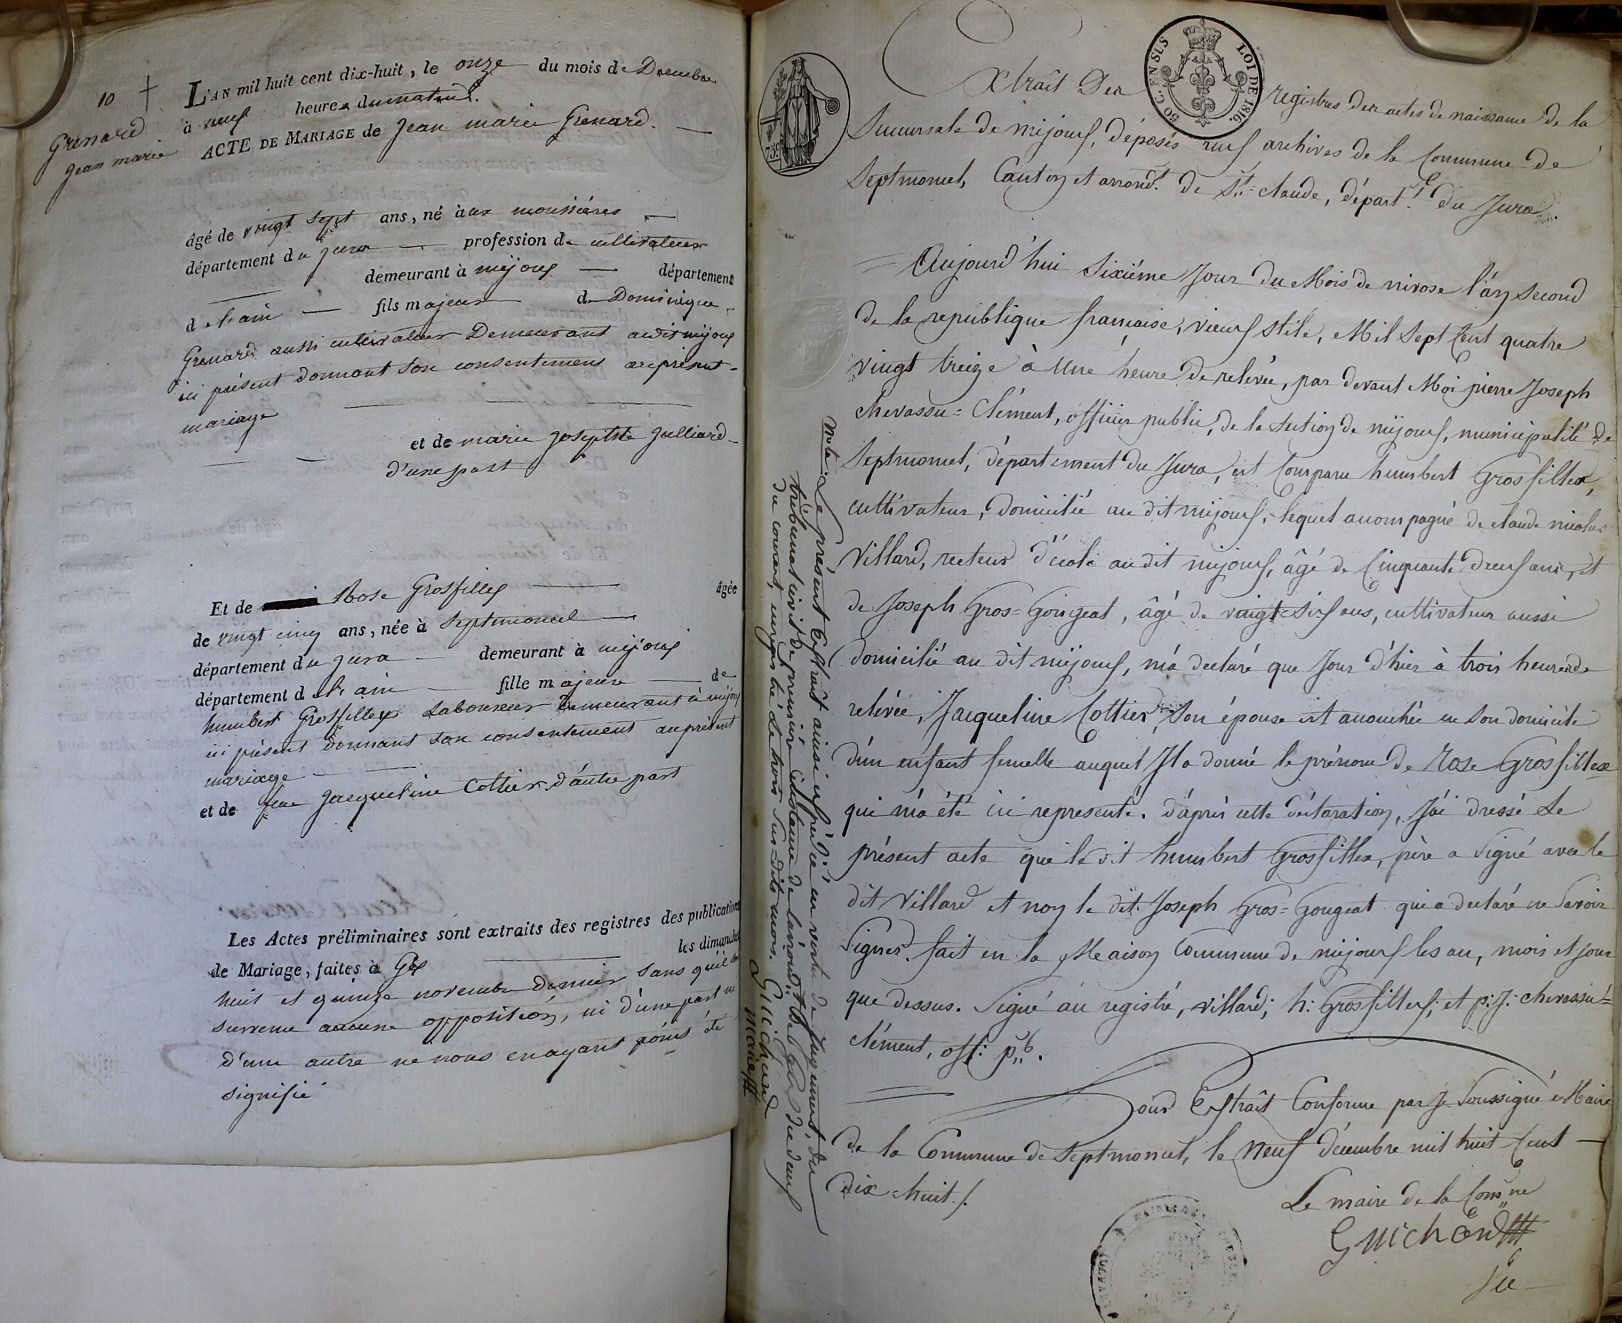 10 +
Grenard
Jean marie
L'AN mil huit cent dix-huit, le onze du mois de Décembre
à neuf heures du matin.
ACTE DE MARIAGE de Jean marie Grenard.
âgé de vingt sept ans, né à aux moussières
département du jura profession de cultivateur
demeurant à mijoux département
de l'ain fils majeur de Dominique
Grenard aussi cultivateur Demeurant audit mijoux
ici présent donnant son consentement au présent
mariage
et de marie Josephte Julliard
d'une part
Et de Rose Grosfilley âgée
de vingt cinq ans, née à Septmoncel
département du jura demeurant à mijoux
département de l'ain fille majeure de
humbert Grosfilley Laboureur demeurant à mijoux
ici présent donnant son consentement au présent
mariage
et de feue Jacqueline Cottier d'autre part
Les Actes préliminaires sont extraits des registres des publications
de Mariage, faites à Gex les dimanches
huit et quinze novembre dernier sans qu'il
survenu aucune opposition, ni d'une part ni
d'une autre ne nous en ayant point été
signifié
50 C. EN SUS LOI DE 1816.
Extrait Des registres des actes de naissance de la
Succursale de mijoux, déposés aux archives de la Commune de
Septmoncel, Canton et arrond.t de St. claude, départ.t du Jura.
Aujourd'hui Sixième Jour du Mois de nivose l'an Second
de la republique francaise, vieux stile, Mil Sept Cent quatre
vingt treize à Une heure de relevée, par devant Moi pierre Joseph
chevassu=Clément, officier public, de la Section de mijoux, municipalité de
Septmoncel, département du Jura, est Comparu humbert Grosfillex,
cultivateur, domicilié au dit mijoux, lequel accompagné de claude nicolas
Villard, recteur d'école au dit mijoux, âgé de Cinquante deux ans, et
de Joseph Gros=Gougeat, âgé de vingt-six ans, cultivateur aussi
domicilié au dit mijoux, m'a declaré que Jour d'hier à trois heures de
relevée, Jacqueline Cottier, Son épouse est accouchée en son domicile
d'un enfant femelle auquel Il a donné le prénom de Rose Grosfillex
qui m'a été ici representé. d'après cette déclaration, J'ai dressé Le
présent acte que le dit humbert Grosfillex, père a Signé avec le
dit Villard et non le dit Joseph Gros=Gougeat qui a declaré ne Savoir
Signer. fait en la Maison Commune de mijoux les an, mois et jour
que dessus. Signé au registre, villard; h: Grosfillex; et p: J: chevassu=
clément, off: p.b.
Pour Extrait Conforme par Je Soussigné Maire
de la Commune de Septmoncel, le Neuf décembre mil huit Cent
dix=huit.
Le maire de la Com.ne
Guichard
Nota: Le présent Extrait ainsi expédié en vertu de Jugement, du
tribunal civil de première instance de l'arrond.t de Gex du deux
du courant, enregistré Le trois Sus-dits mois.
Guichard
maire